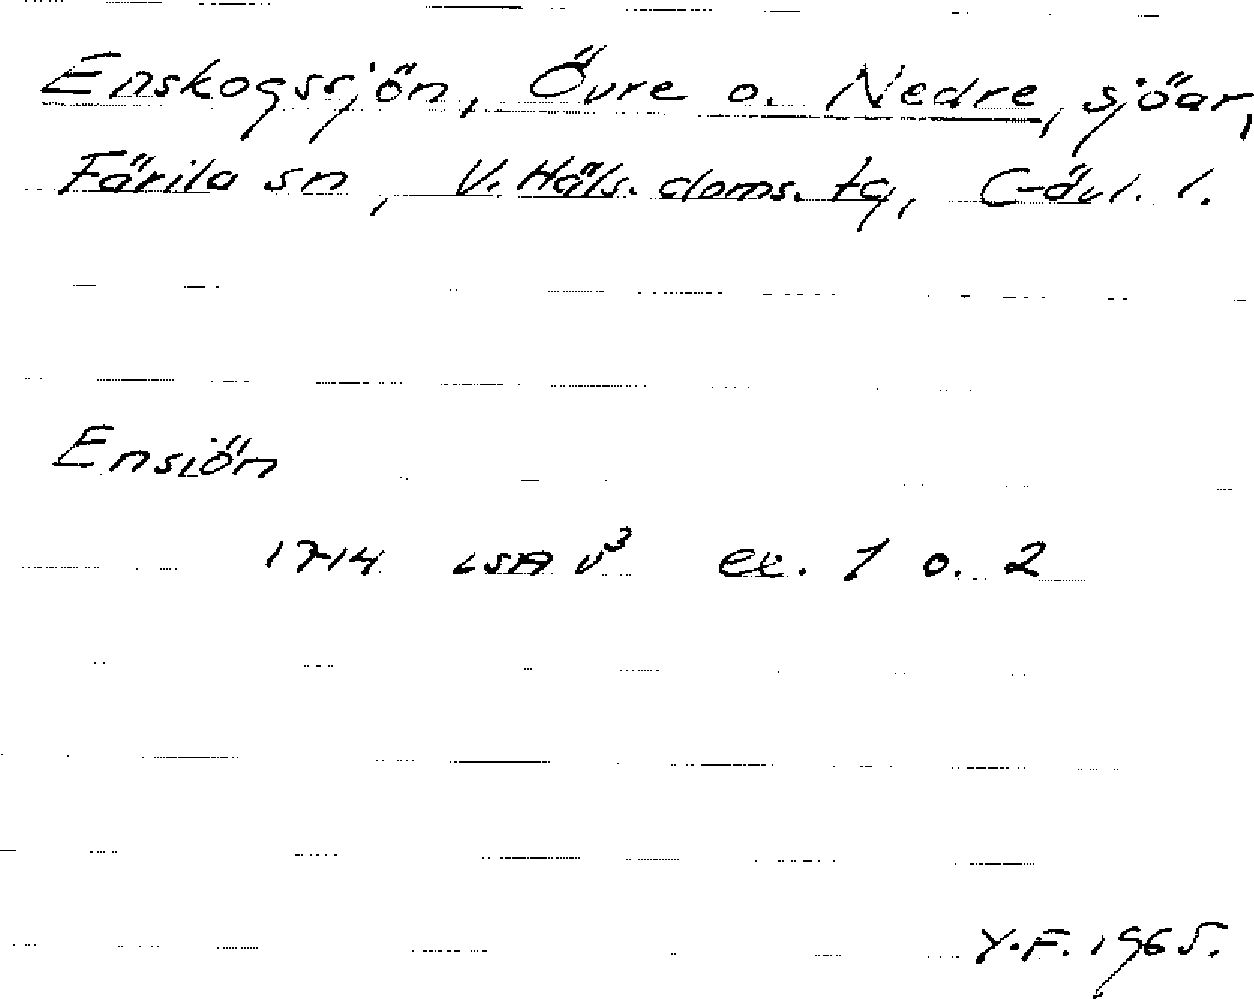 Enskogssjön, Övre o. Nedre, sjöar,
Färila sn, V. Häls. doms. tg, Gävl. l.
Ensiön
1714 LSA V³ ex. 1 o. 2
Y.F. 1965.